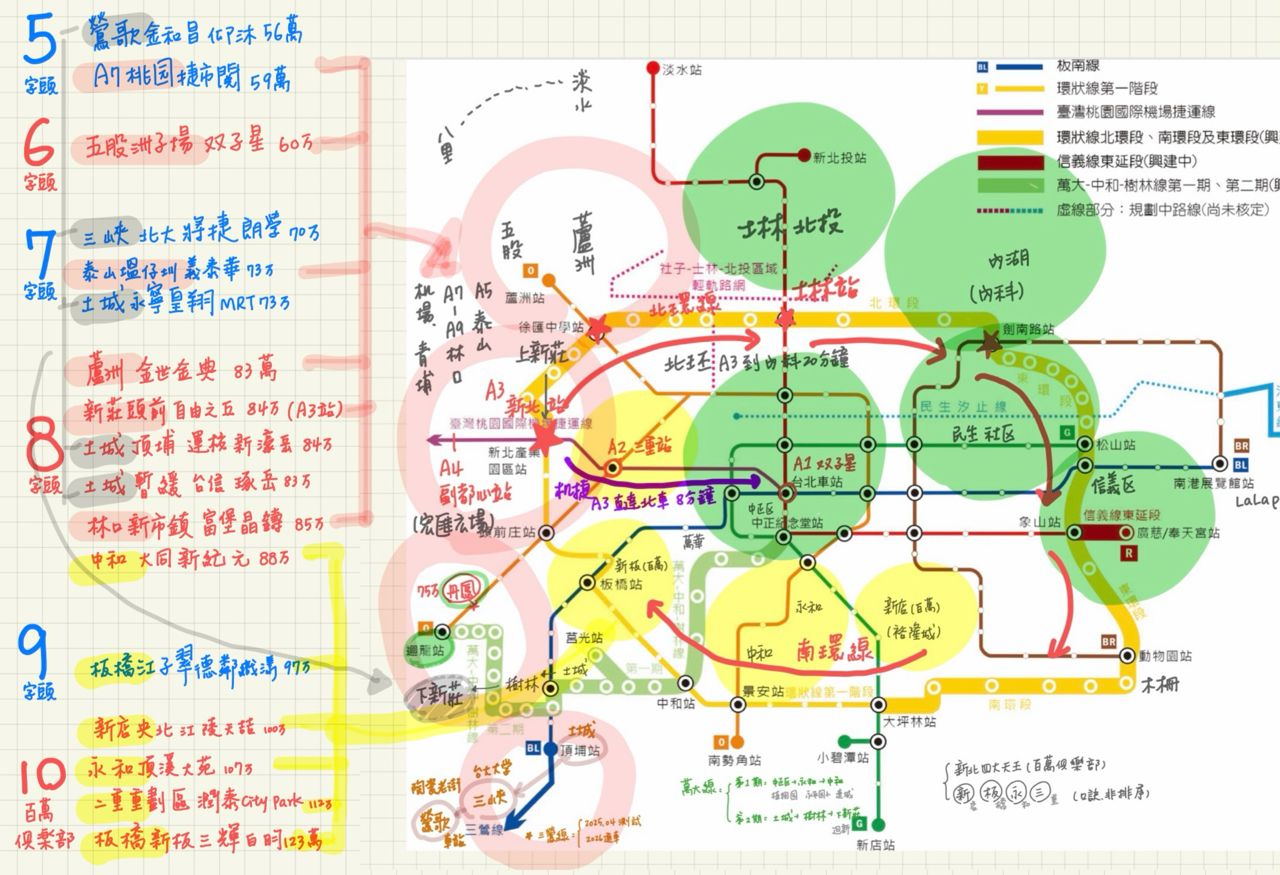 5
字頭
鶯歌金和昌仰沐 56萬
A7桃園捷市閱 59萬
6
字頭
五股洲子場双子星 60万
7
字頭
三峽北大將捷朗學 70万
泰山塭仔圳義泰華 73万
土城永寧皇翔MRT 73万
8
字頭
蘆洲 金世金典 83萬
新莊頭前自由之丘 84万(A3站)
土城頂埔 運校新濠岳 84万
土城暫緩 合信琢岳 83万
林口新市鎮 富堡晶鑄 85万
中和 大同新紀元 88万
9
字頭
板橋江子翠德鄰織漾 97万
10
百萬
俱樂部
新店央北江陵天喆 100万
永和頂漢大苑 107万
二重重劃區潤泰City Park 112万
板橋新板三輝白昀 123萬
淡水
八里
淡水站
新北投站
士林 北投
BL 板南線
Y 環狀線第一階段
臺灣桃園國際機場捷運線
環狀線北環段、南環段及東環段(興
信義線東延段(興建中)
萬大-中和-樹林線第一期、第二期(
虛線部分：規劃中路線(尚未核定)
五股
蘆洲
機場
青埔
A7-A9林口
A5泰山
O
蘆洲站
社子-士林-北投區域
輕軌路網
士林站
北環段
內湖
(內科)
劍南路站
徐匯中學站
北環線
上新莊
北環 A3到內科20分鐘
東環段
A3
新北站
臺灣桃園國際機場捷運線
新北產業
園區站
A2三重站
民生汐止線
民生社區
G
松山站
BR
BL
南港展覽館站
LaLap
A4
副都心站
(宏匯広場)
机捷
A3直達北車8分鐘
A1双子星
台北車站
中正区
中正紀念堂站
信義区
象山站
信義線東延段
廣慈/奉天宮站
R
頭前庄站
萬華
75万
丹鳳
新板(百萬)
板橋站
萬大-中和-樹林線
永和
新店(百萬)
(裕隆城)
東環段
O
迴龍站
萬大-中和-樹林線
莒光站
土城
第一期
中和
南環線
BR
動物園站
木柵
下新莊
樹林
第二期
中和站
景安站
環狀線第一階段
大坪林站
南環段
BL
頂埔站
土城
O
南勢角站
小碧潭站
陶瓷老街
台北大學
三峽
鶯歌
車站
三鶯線
*三鶯線
2025.04測試
2026通車
萬大線
第1期：中正→永和→中和
第2期：土城→樹林→下新莊
迴龍
G
新店站
新北四大天王(百萬俱樂部)
新 板 永 三 (口訣.非排序)